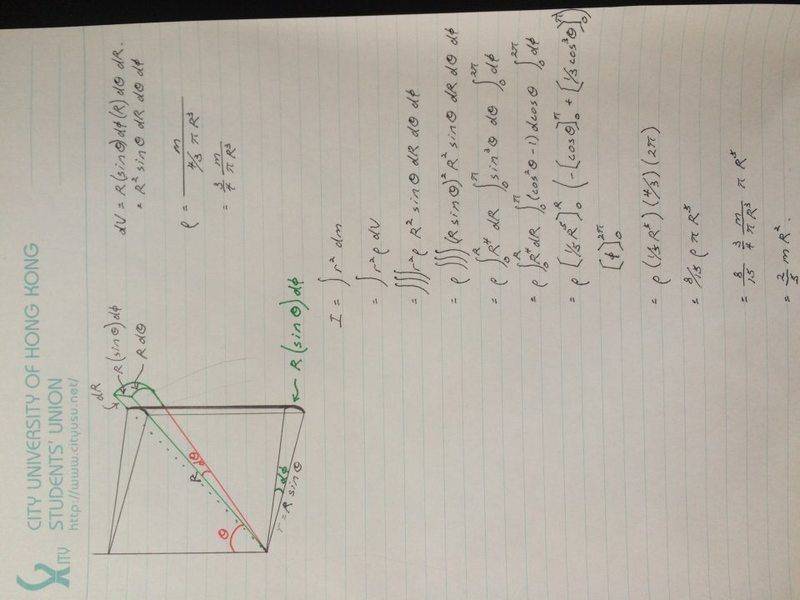 CITY UNIVERSITY OF HONG KONG
STUDENTS' UNION
http://www.cityusu.net/
dR
R(sinθ)dϕ
R dθ
R
dθ
θ
dϕ
r = R sinθ
← R(sinθ)dϕ
dV = R(sinθ)dϕ(R)dθ dR.
= R² sinθ dR dθ dϕ
ρ = m / (4/3 π R³)
= 3/4 m/(π R³)
I = ∫ r² dm
= ∫ r² ρ dV
= ∭ r² ρ R² sinθ dR dθ dϕ
= ρ ∭ (R sinθ)² R² sinθ dR dθ dϕ
= ρ ∫₀ᴿ R⁴ dR ∫₀^π sin³θ dθ ∫₀^2π dϕ
= ρ ∫₀ᴿ R⁴ dR ∫₀^π (cos²θ-1) dcosθ ∫₀^2π dϕ
= ρ [1/5 R⁵]₀ᴿ (-[cosθ]₀^π + [1/3 cos³θ]₀^π)
[ϕ]₀^2π
= ρ (1/5 R⁵)(4/3)(2π)
= 8/15 ρ π R⁵
= 8/15 3/4 m/(π R³) π R⁵
= 2/5 m R².